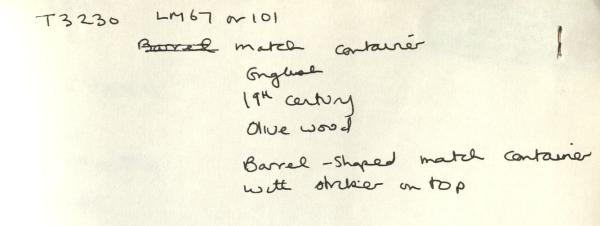 T3230 LM67 or 101
Barrel match container
English
19th century
Olive wood
Barrel-shaped match container
with striker on top